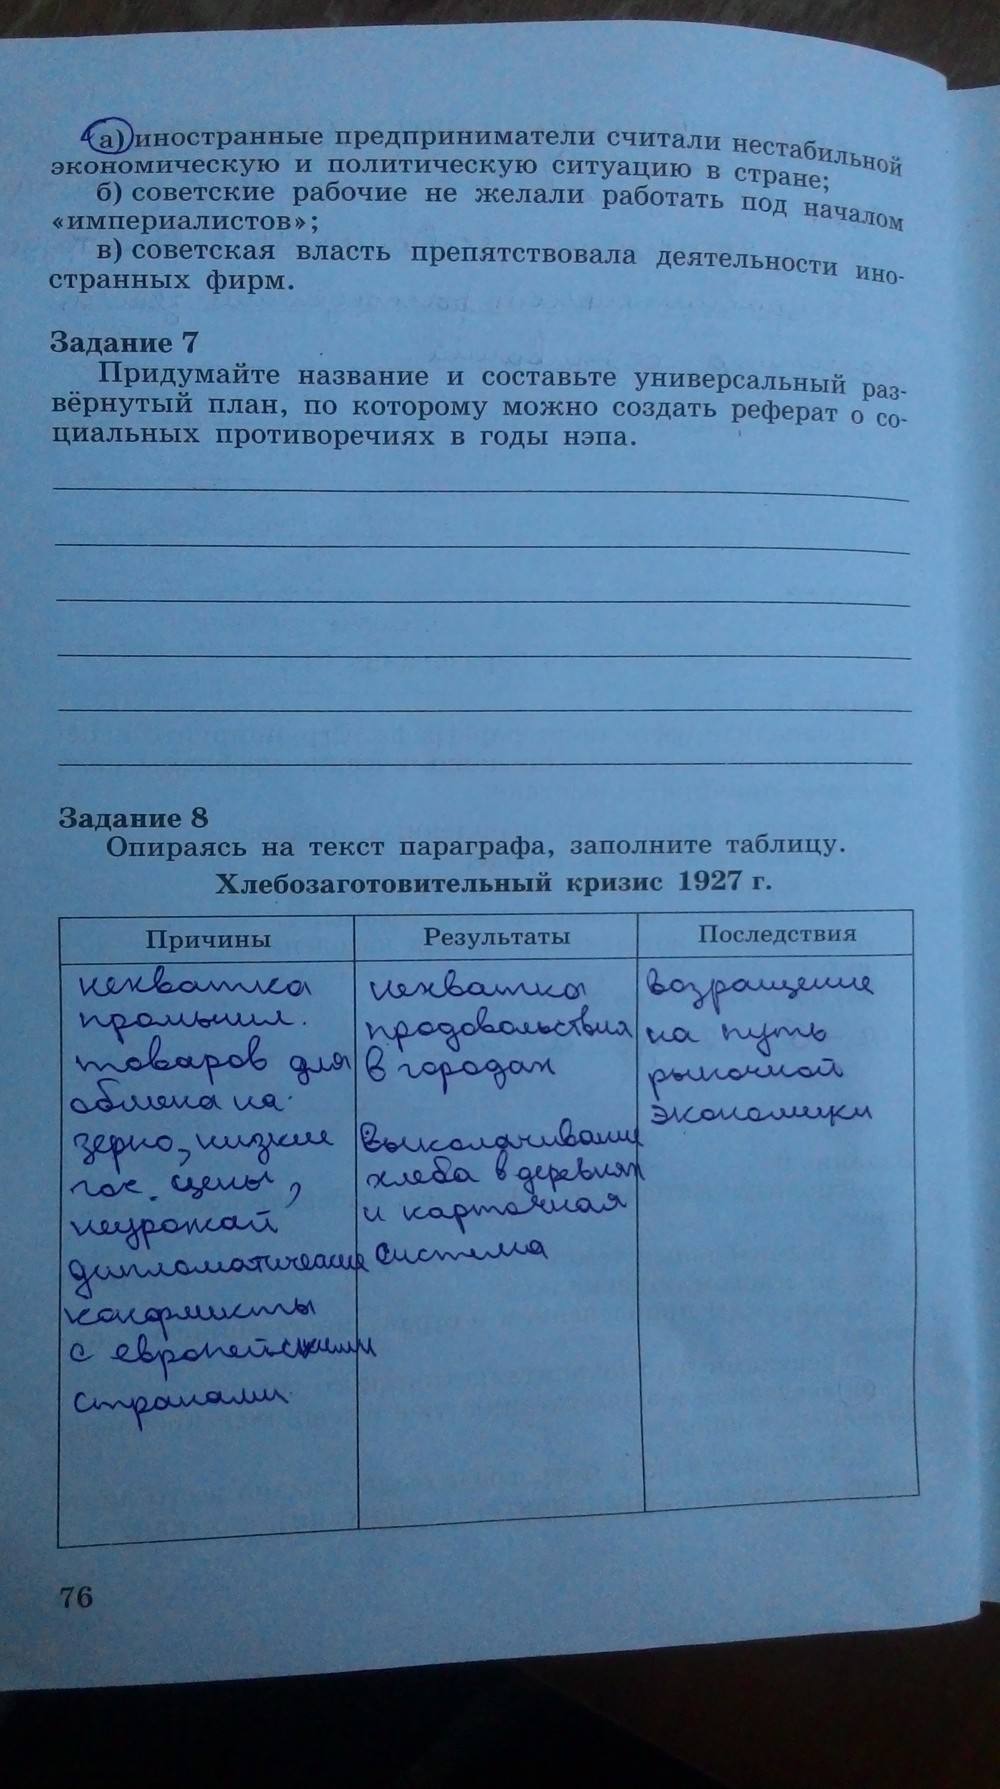 а) иностранные предприниматели считали нестабильной
экономическую и политическую ситуацию в стране;
б) советские рабочие не желали работать под началом
«империалистов»;
в) советская власть препятствовала деятельности ино-
странных фирм.
Задание 7
Придумайте название и составьте универсальный раз-
вёрнутый план, по которому можно создать реферат о со-
циальных противоречиях в годы нэпа.
Задание 8
Опираясь на текст параграфа, заполните таблицу.
Хлебозаготовительный кризис 1927 г.
Причины
нехватка
промышл.
товаров для
обмена на
зерно, низкие
гос. цены,
неурожай
дипломатические
конфликты
с европейскими
странами.
Результаты
нехватка
продовольствия
в городах
Выколачивание
хлеба в деревнях
и карточная
система
Последствия
возращение
на путь
рыночной
экономики
76